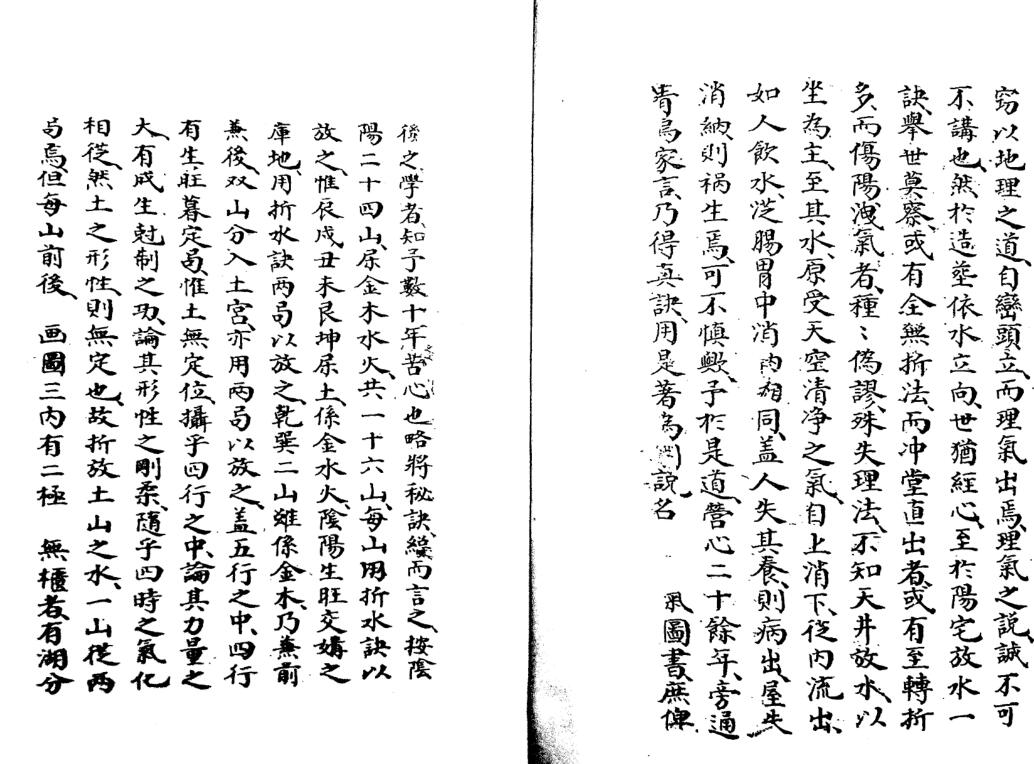 窃以地理之道、自巒頭立、而理氣出焉、理氣之説、誠不可
不講也、然於造塋依水立向、世猶經心、至於陽宅放水一
訣、舉世莫察、或有全無折法、而冲堂直出者、或有至轉折
多、而傷陽洩氣者、種〻偽謬、殊失理法、不知天井放水、以
坐為主、至其水、原受天空清净之氣、自上消下、從内流出、
如人飲水、從腸胃中消納相同、盖人失其養、則病出、屋失
消納、則禍生焉、可不慎歟、予於是道、營心二十餘年、旁通
青烏家言、乃得真訣、用是著為圖説、名 圖書、庶俾
後之學者、知予數十年苦心也、略將秘訣、總而言之、按陰
陽二十四山、屬金木水火、共一十六山、每山用折水訣以
放之、惟辰戌丑未艮坤屬土、係金水火、陰陽生旺交媾之
庫地、用折水訣两局以放之、乾巽二山、雖係金木、乃兼前
兼後、双山分入土宮、亦用兩局以放之、盖五行之中、四行
有生旺墓定局、惟土無定位、攝乎四行之中、論其力量之
大、有成生尅制之功、論其形性之剛柔、隨乎四時之氣化
相從、然土之形性、則無定也、故折放土山之水、一山從两
局焉、但每山前後、 画圖三内有二極 無櫃者、有湖分